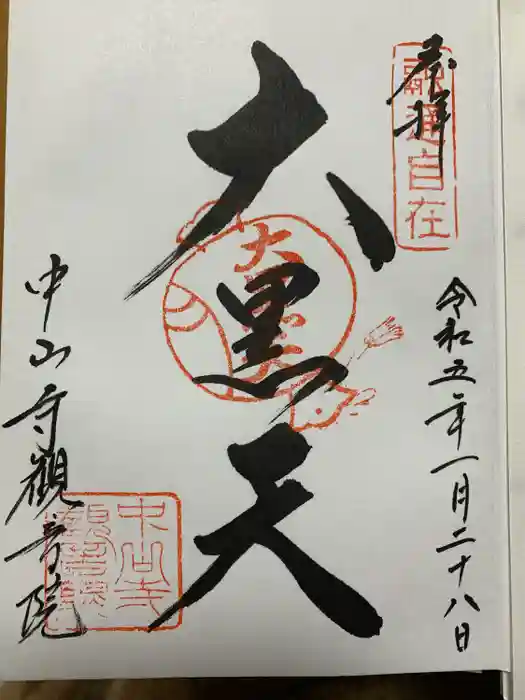 奉拝
融通自在
令和五年一月二十八日
大黒天
大黒天
中山寺觀音院
中山寺